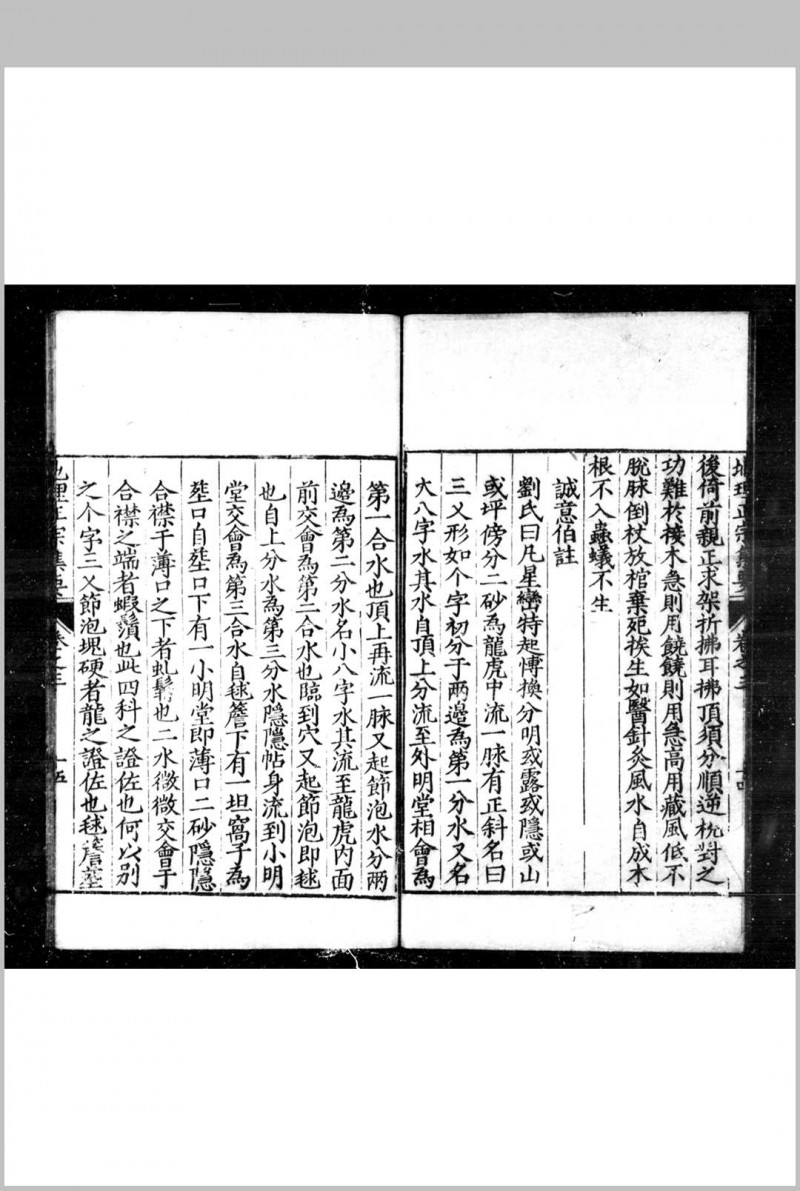 後倚前親正求架折拂耳拂頂須分順逆枕對之
功難於接木急則用饒饒則用急高用藏風低不
脫脉倒杖放棺棄死挨生如醫針灸風水自成木
根不入蟲蟻不生
誠意伯註
劉氏曰凡星巒特起愽換分明或露或隱或山
或坪傍分二砂為龍虎中流一脉有正斜名曰
三义形如个字初分于兩邉為第一分水又名
大八字水其水自頂上分流至外明堂相會為
第一合水也頂上再流一脉又起節泡水分兩
邉為第二分水名小八字水其流至龍虎内面
前交會為第二合水也臨到穴又起節泡即毬
也自上分水為第三分水隱隱帖身流到小明
堂交會為第三合水自毬簷下有一坦窩子為
塟口自塟口下有一小明堂即薄口二砂隱隱
合襟于薄口之下者虬鬚也二水微微交會于
合襟之端者蝦鬚也此四科之證佐也何以别
之个字三义節泡塊硬者龍之證佐也毬簷塟
地理正宗集要 卷之三 十五